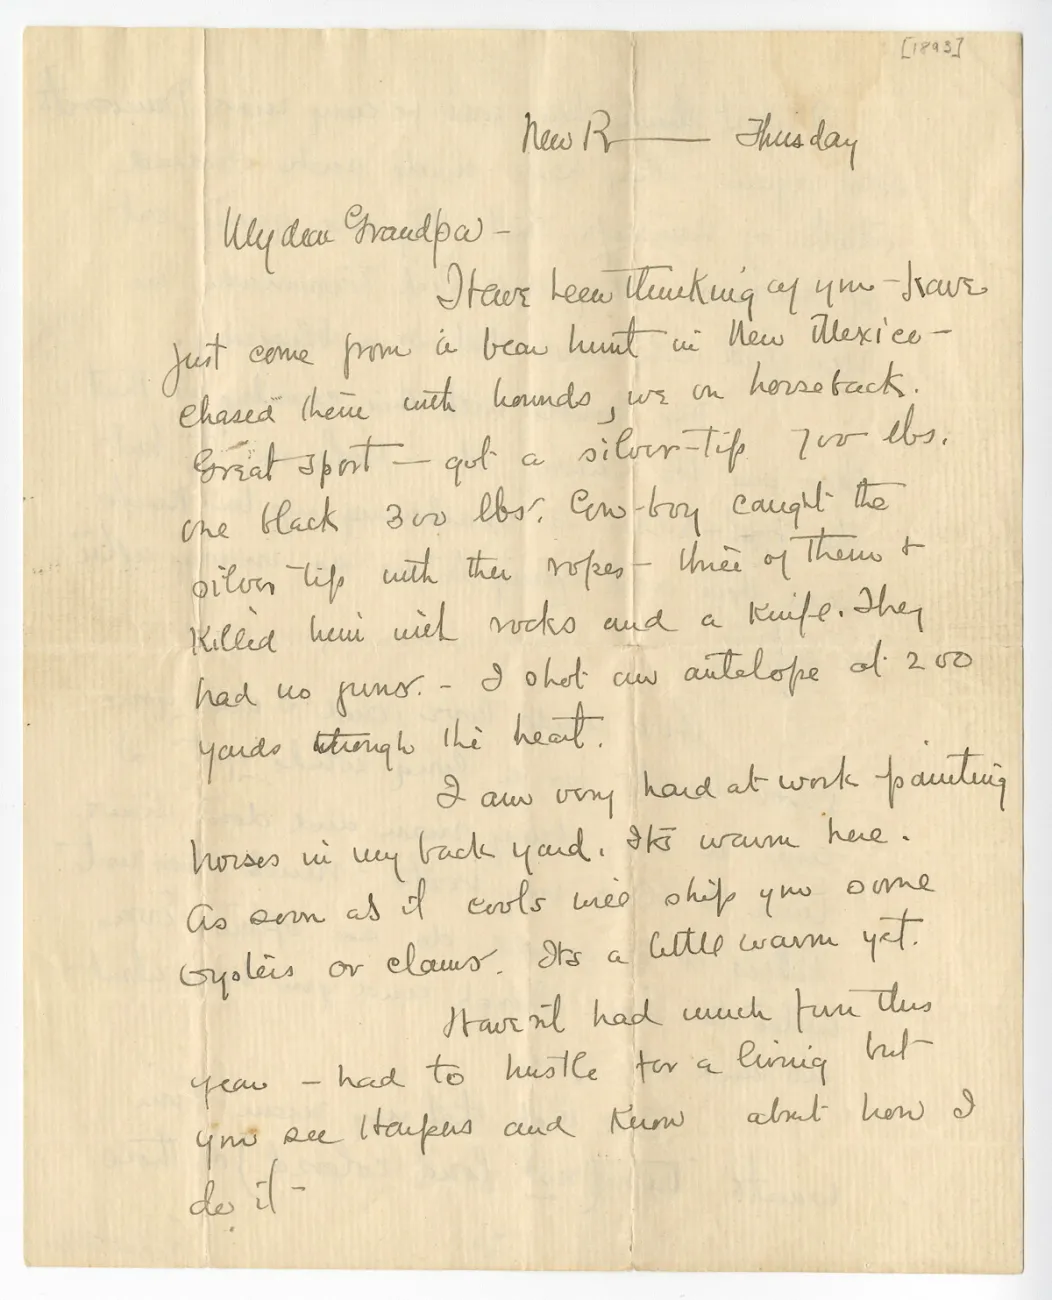 [1893]
New R—— Thusday
My dear Grandpa –
I Have been thinking of you – have
just come from a bear hunt in New Mexico –
chased them with hounds, we on horseback.
Great Sport – got a silver-tip 700 lbs.
one black 300 lbs. Cow-boy caught the
silver tip with ther ropes – three of them &
Killed him with rocks and a Knife. They
had no guns. – I shot an antelope at 200
yards through the heart.
I am very hard at work painting
horses in my back yard. Its warm here.
As soon as it cools will ship you some
oysters or clams. Its a little warm yet.
Haven't had much fun this
year – had to hustle for a living but
you see Harpers and Know about how I
do it –